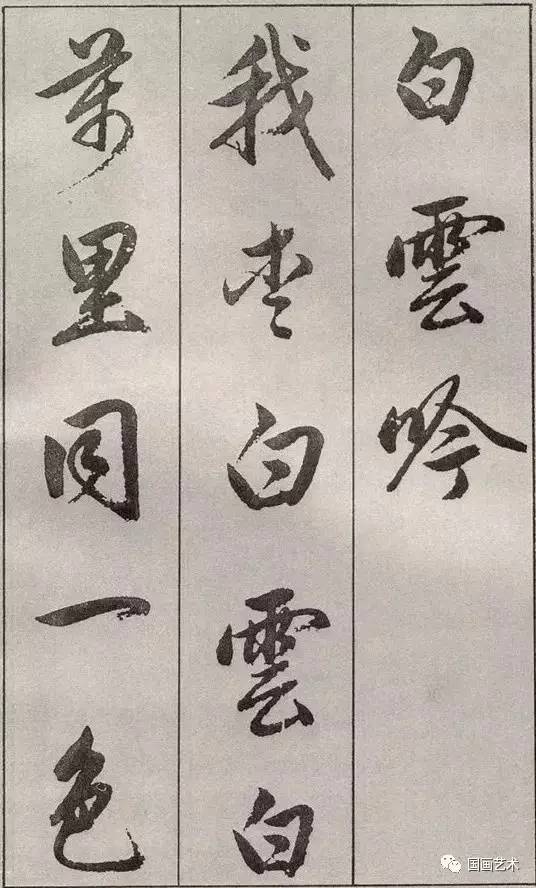 白雲吟
我白雲白
萬里同一色
国画艺术